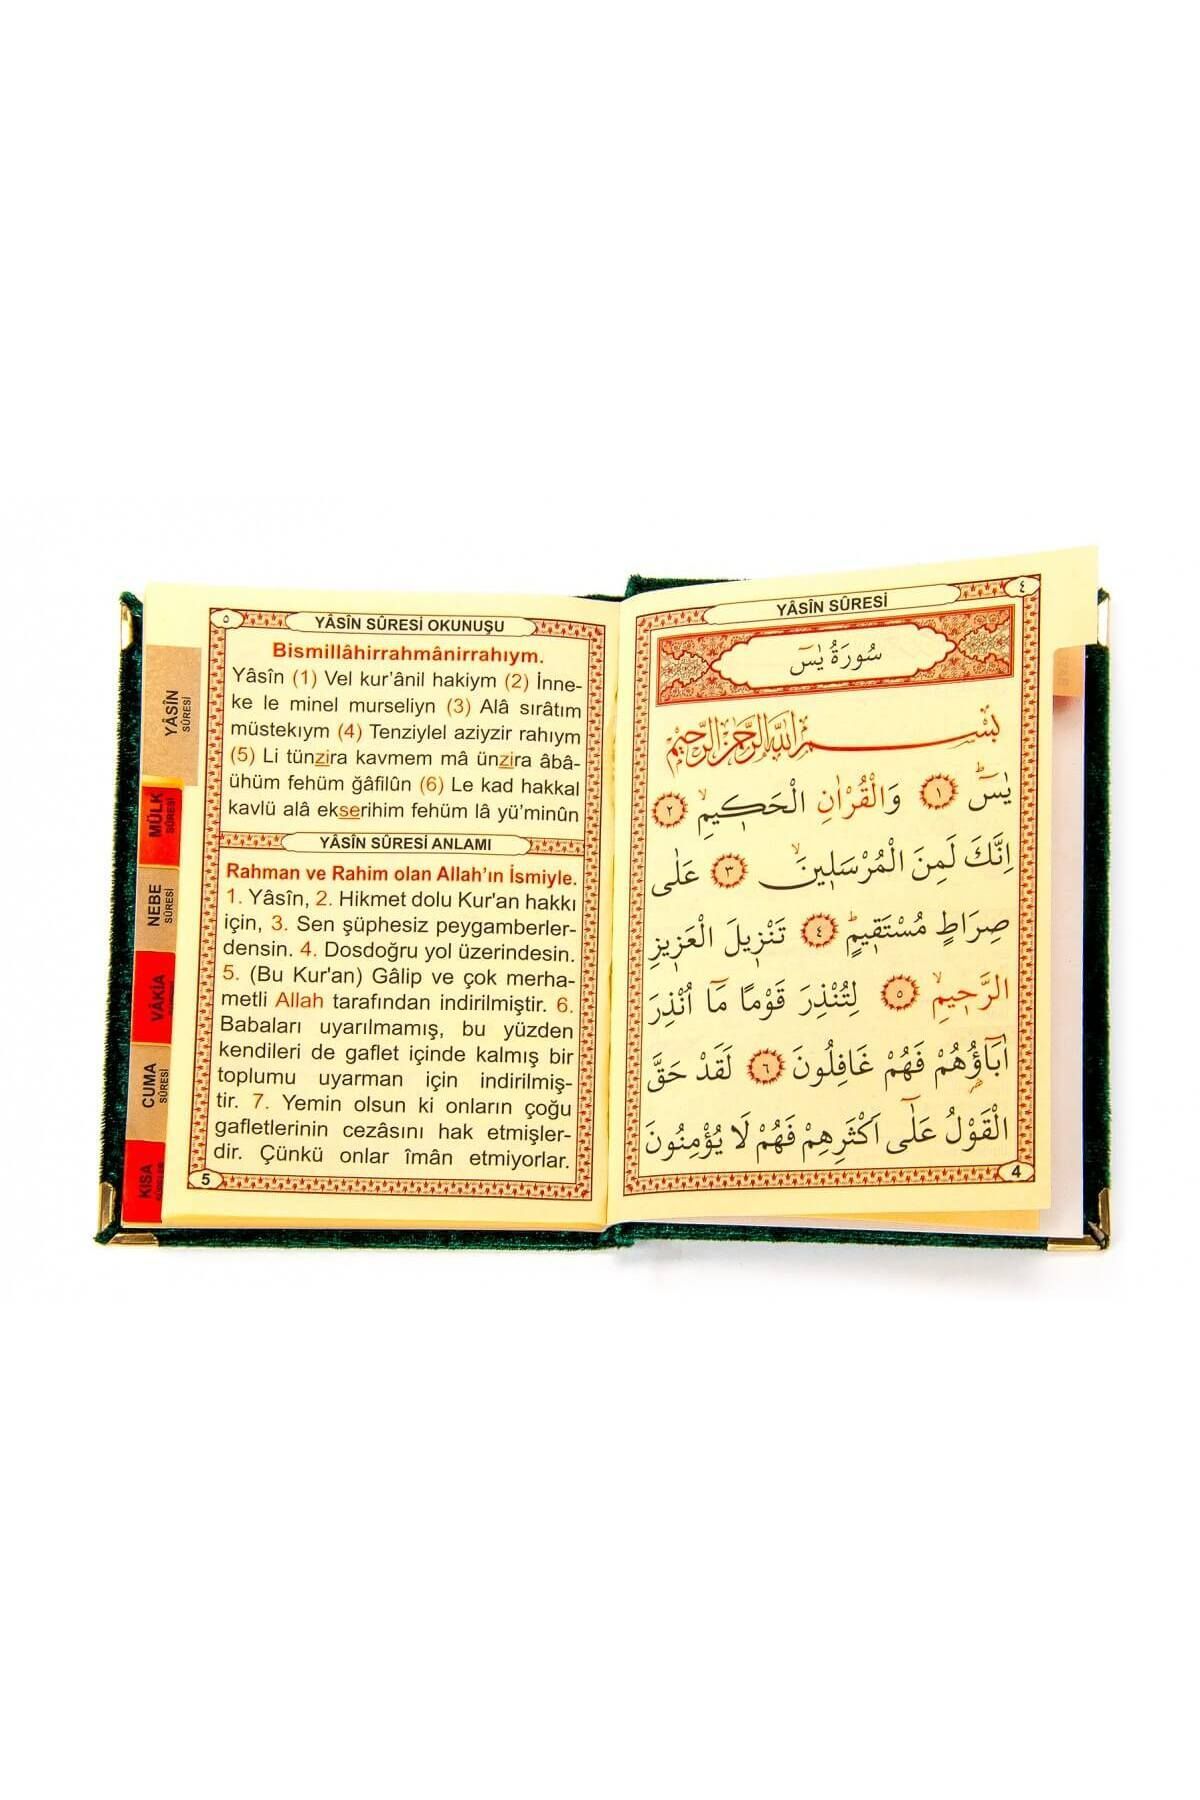 ٤
YÂSÎN SÛRESİ
سُورَةُ يٰسٓ
بِسْمِ اللّٰهِ الرَّحْمٰنِ الرَّحِيمِ
يٰسٓۜ ﴿١﴾ وَالْقُرْاٰنِ الْحَكٖيمِۙ ﴿٢﴾
اِنَّكَ لَمِنَ الْمُرْسَلٖينَۙ ﴿٣﴾ عَلٰى
صِرَاطٍ مُسْتَقٖيمٍۜ ﴿٤﴾ تَنْزٖيلَ الْعَزٖيزِ
الرَّحٖيمِۙ ﴿٥﴾ لِتُنْذِرَ قَوْمًا مَٓا اُنْذِرَ
اٰبَٓاؤُ۬هُمْ فَهُمْ غَافِلُونَ ﴿٦﴾ لَقَدْ حَقَّ
الْقَوْلُ عَلٰٓى اَكْثَرِهِمْ فَهُمْ لَا يُؤْمِنُونَ
4
٥
YÂSÎN SÛRESİ OKUNUŞU
Bismillâhirrahmânirrahıym.
Yâsîn (1) Vel kur'ânil hakiym (2) İnne-
ke le minel murseliyn (3) Alâ sırâtım
müstekıym (4) Tenziylel aziyzir rahıym
(5) Li tünzira kavmem mâ ünzira âbâ-
ühüm fehüm ğâfilûn (6) Le kad hakkal
kavlü alâ ekserihim fehüm lâ yü'minûn
YÂSÎN SÛRESİ ANLAMI
Rahman ve Rahim olan Allah'ın İsmiyle.
1. Yâsîn, 2. Hikmet dolu Kur'an hakkı
için, 3. Sen şüphesiz peygamberler-
densin. 4. Dosdoğru yol üzerindesin.
5. (Bu Kur'an) Gâlip ve çok merha-
metli Allah tarafından indirilmiştir. 6.
Babaları uyarılmamış, bu yüzden
kendileri de gaflet içinde kalmış bir
toplumu uyarman için indirilmiş-
tir. 7. Yemin olsun ki onların çoğu
gafletlerinin cezâsını hak etmişler-
dir. Çünkü onlar îmân etmiyorlar.
5
YÂSÎN
SÛRESİ
MÜLK
SÛRESİ
NEBE
SÛRESİ
VÂKİA
CUMA
SÛRESİ
KISA